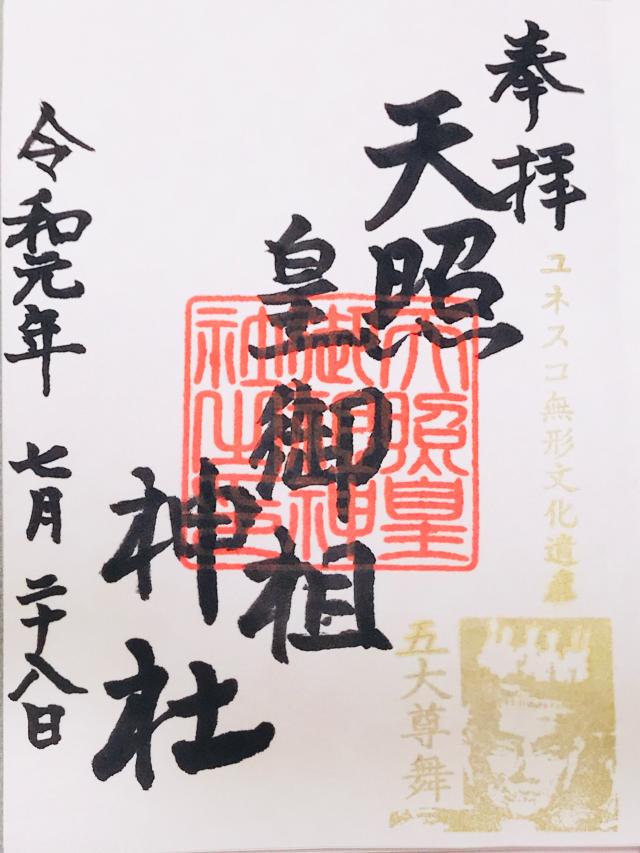 奉拝
ユネスコ無形文化遺産
五大尊舞
天照
皇御祖
神社
天照皇
御祖神
社之印
令和元年七月二十八日